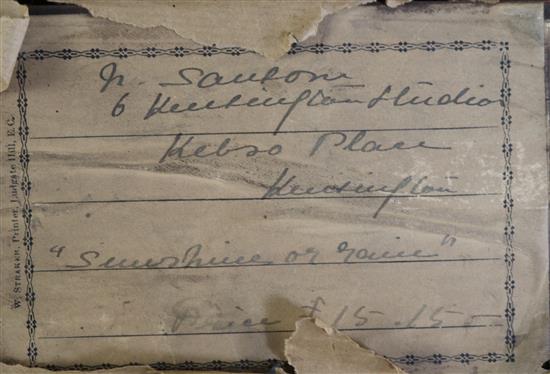 N. Santon
6 Kensington Studios
Kelso Place
Kensington
"Sunshine or rain"
Price £15.15.-
W. STRAKER, Printer, Ludgate Hill, E.C.